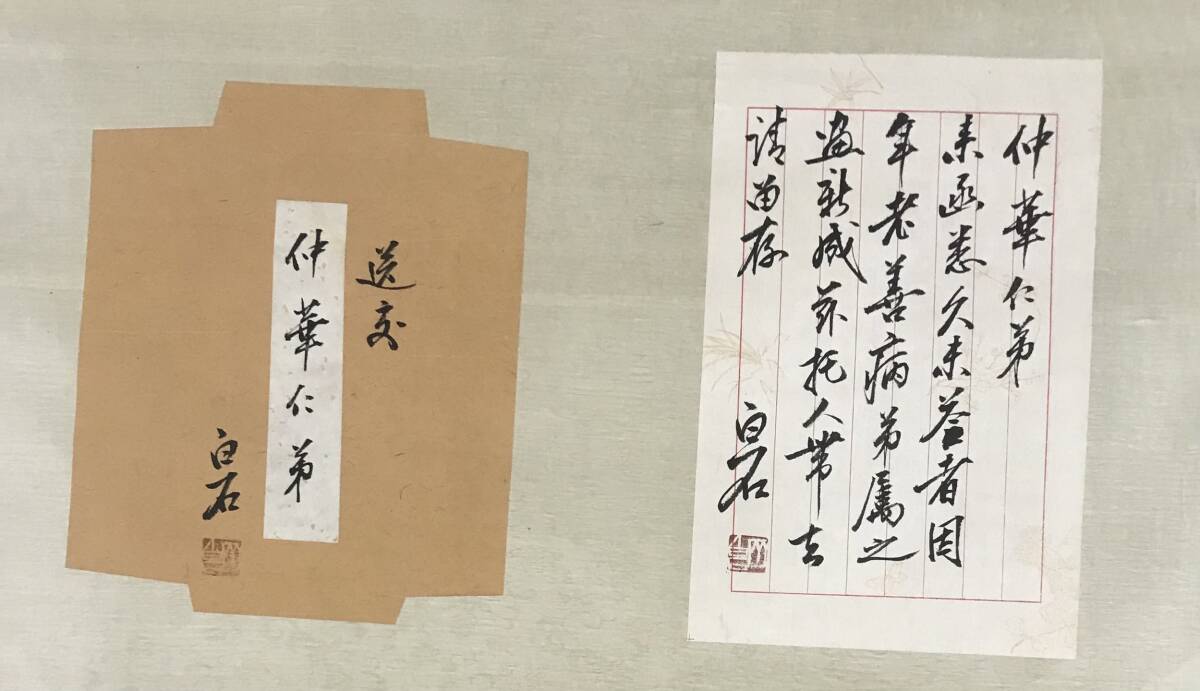 仲華仁弟
来函悉久未答者因
年老善病弟属之
画新成茲托人帶去
請留存
白石
送交
仲華仁弟
白石